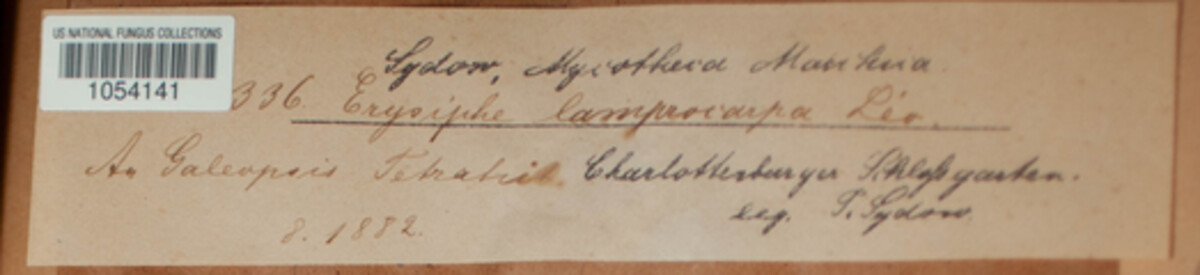 US NATIONAL FUNGUS COLLECTIONS
1054141
Sydow, Mycotheca Marchica
336. Erysiphe lamprocarpa Lév.
An Galeopsis Tetrahit Charlottenburger Schloßgarten.
8. 1882. leg. P. Sydow.